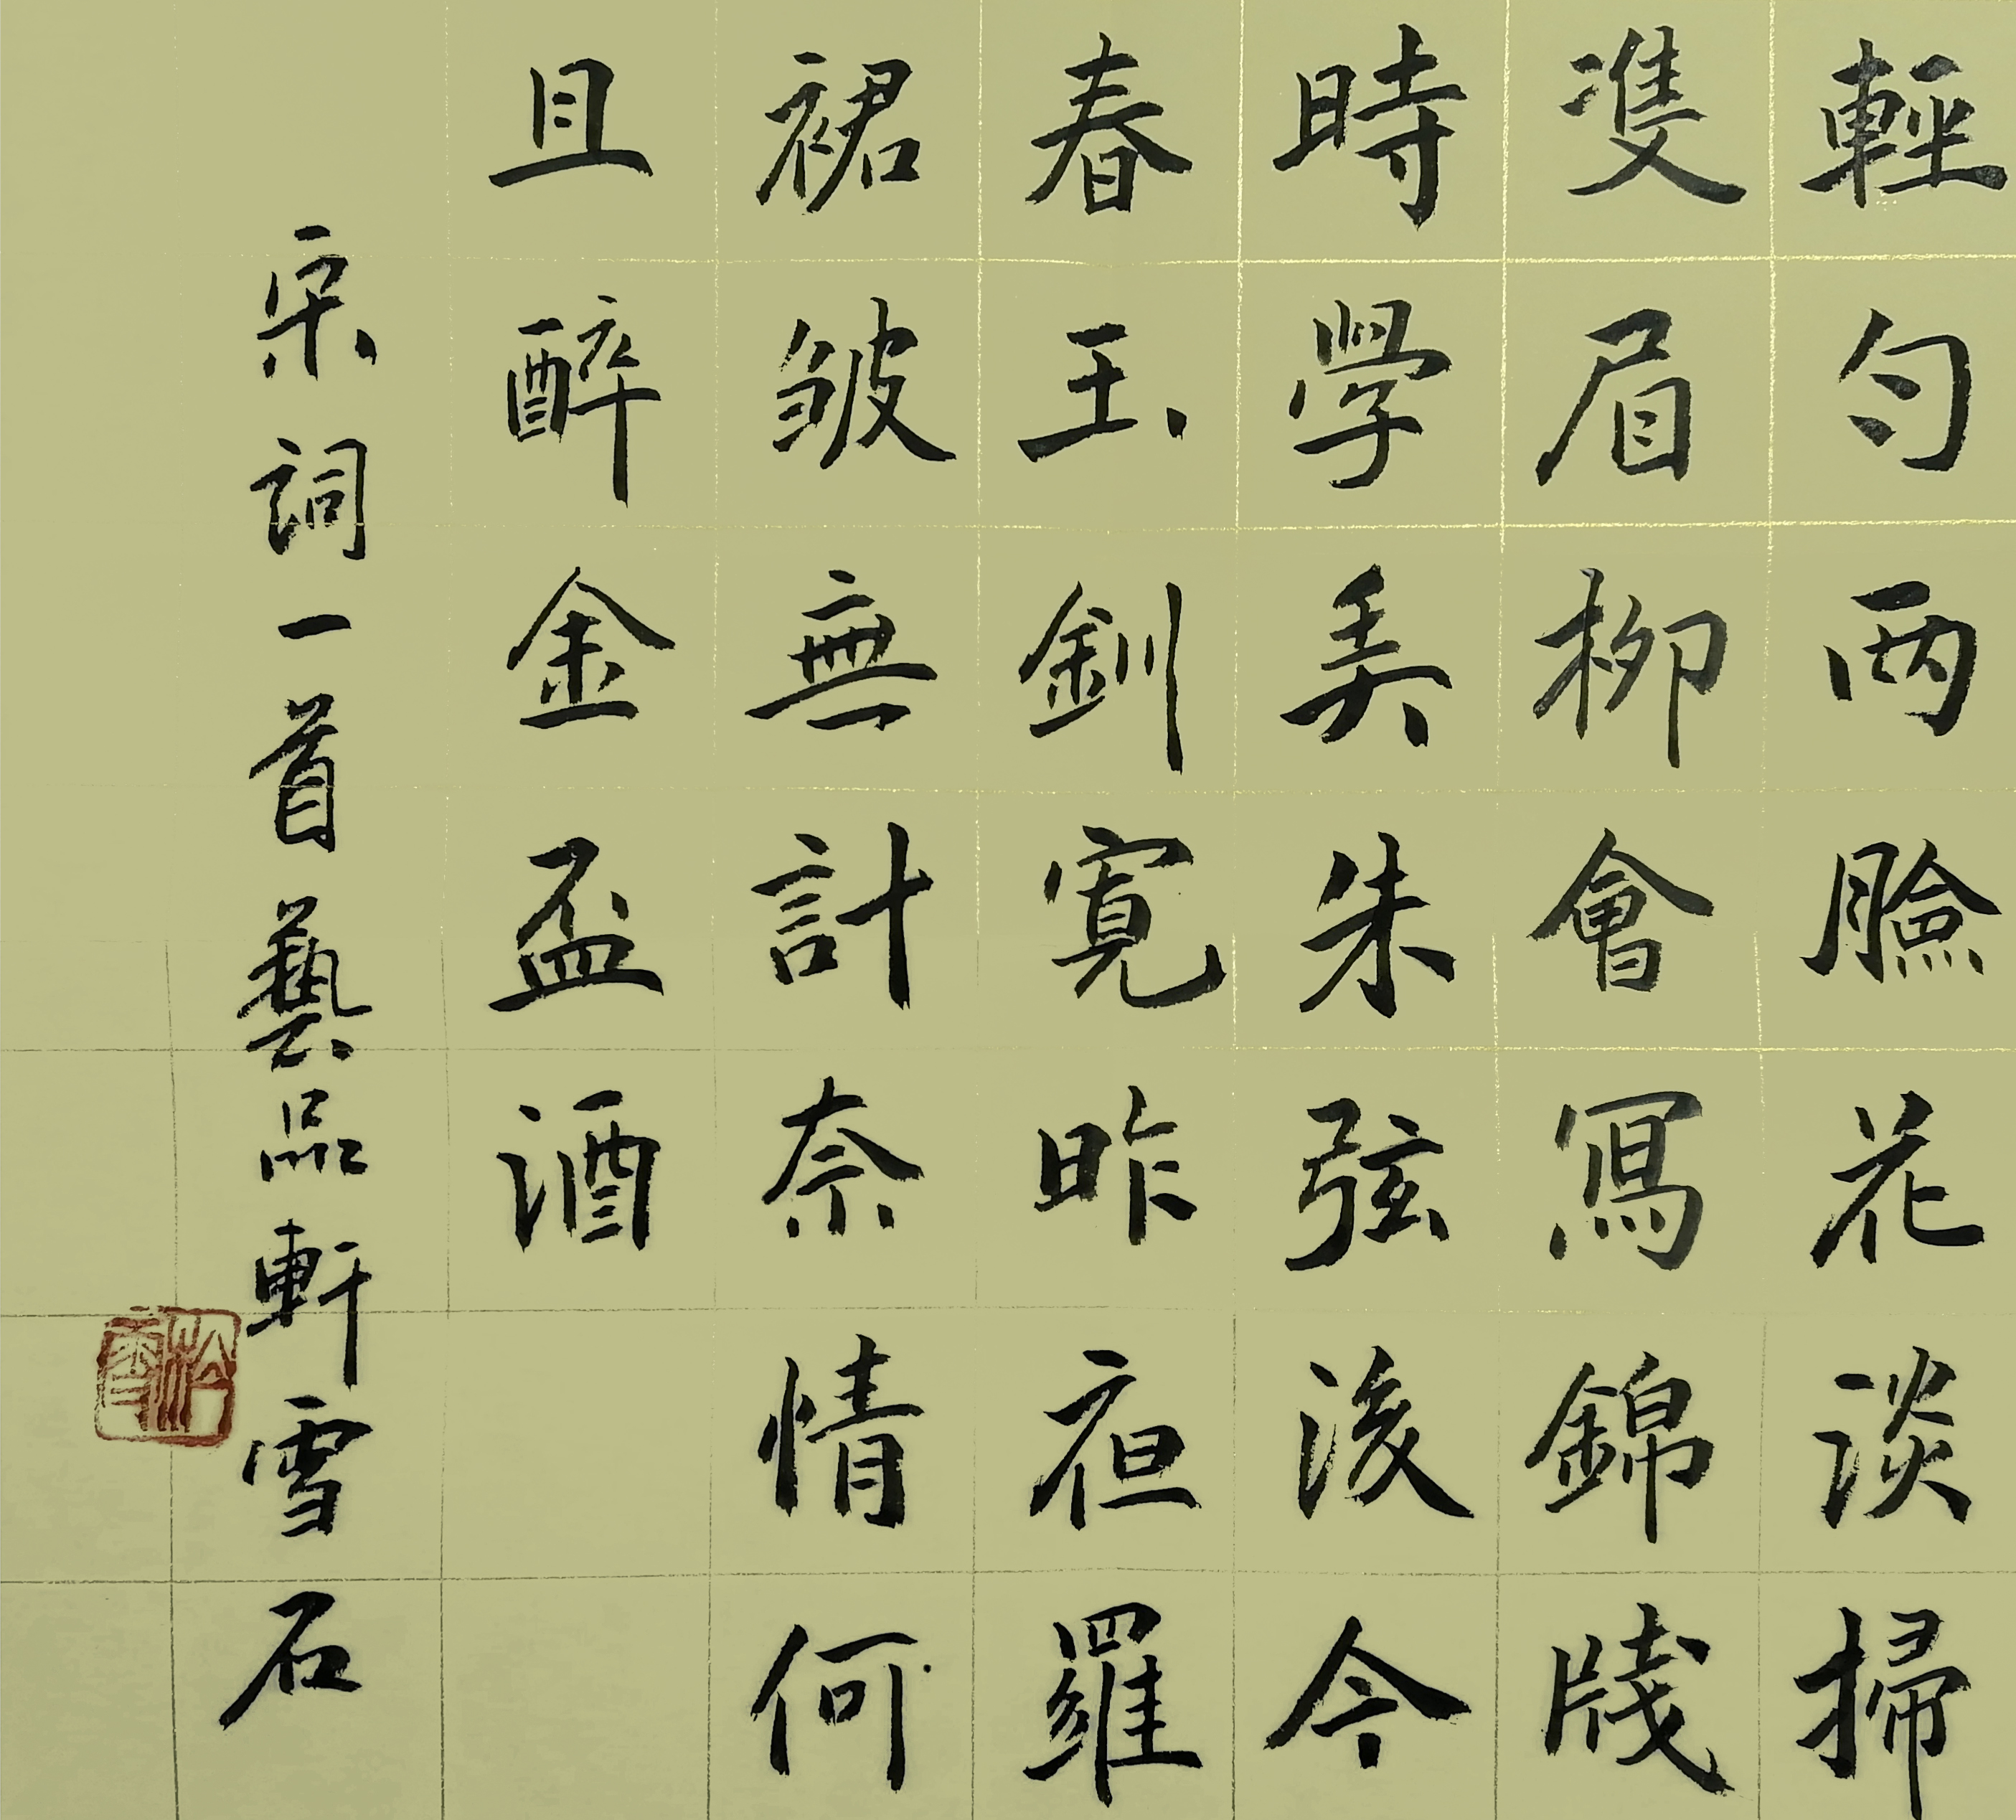 輕勻兩臉花淡掃
雙眉柳會寫錦牋
時學弄朱弦後今
春玉釧寬昨夜羅
裙皺無計奈情何
且醉金盃酒
宋詞一首藝品軒雪石